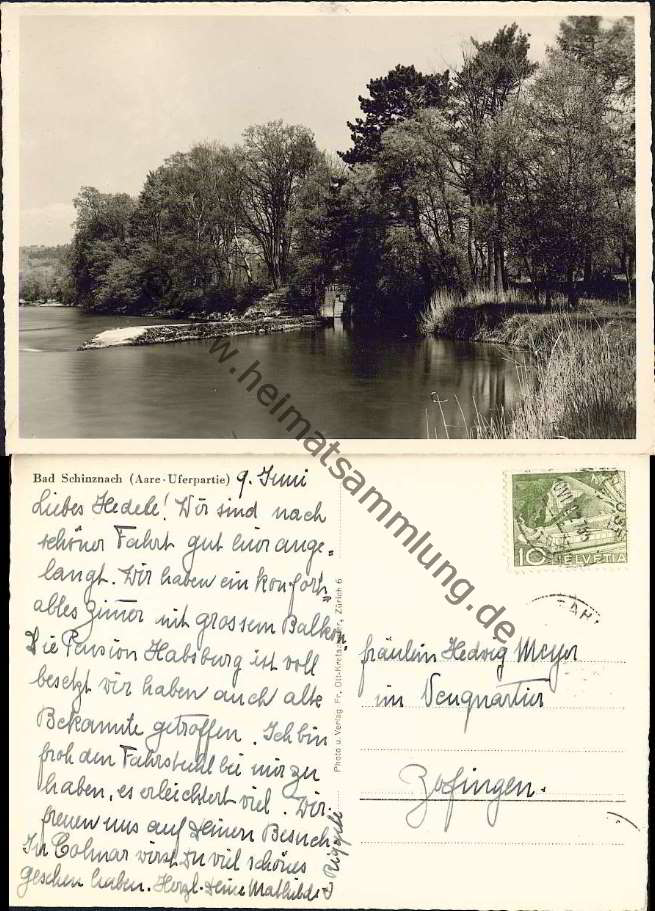 www.heimatsammlung.de
Bad Schinznach (Aare-Uferpartie)
9. Juni
Liebes Hedeli! Wir sind nach
schöner Fahrt gut hier ange-
langt. Wir haben ein konfort-
ables Zimmer mit grossem Balkon
Die Pension Habsburg ist voll
besetzt wir haben auch alte
Bekannte getroffen. Ich bin
froh den Fahrstuhl bei mir zu
haben, es erleichtert viel. Wir
freuen uns auf Deinen Besuch
In Colmar wirst Du viel schönes
gesehen haben. Herzl. Deine Mathilde
Photo u. Verlag Fr. Zürich 6
10 HELVETIA
Fräulein Hedwig Meyer
im Neuquartier
Zofingen.